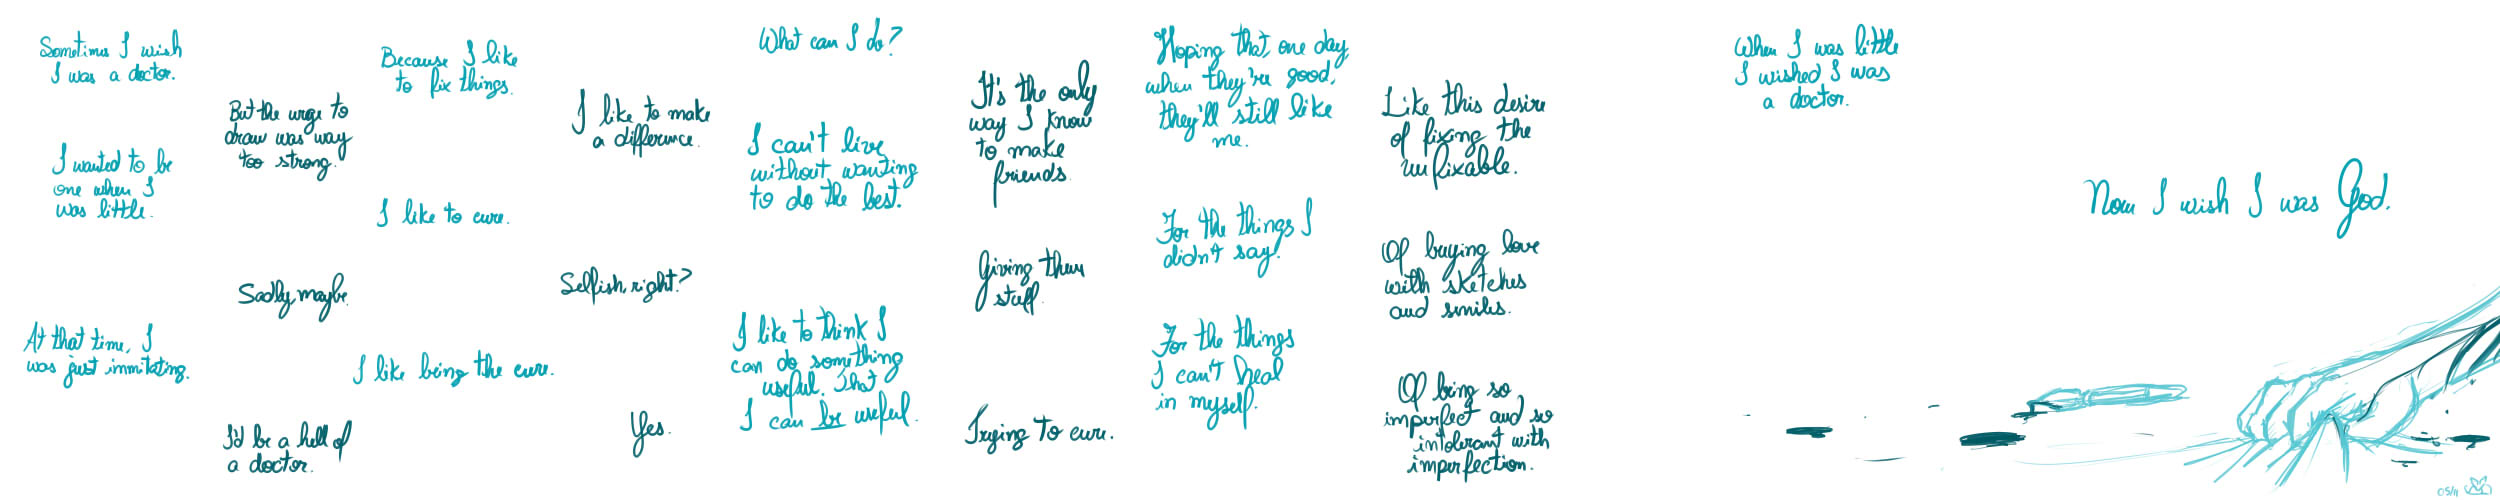 Sometimes I wish
I was a doctor.
I wanted to be
one when I
was little.
At that time, I
was just imitating.
But the urge to
draw was way
too strong.
Sadly maybe.
I'd be a hell of
a doctor.
Because I like
to fix things.
I like to cure.
I like being the cure.
I like to make
a difference.
Selfish, right?
Yes.
What can I do?
I can't live
without wanting
to do the best.
I like to think I
can do something
useful. That
I can be useful.
It's the only
way I know
to make
friends.
Giving them
stuff.
Trying to cure.
Hoping that one day
when they're good,
they'll still like
me.
For the things I
didn't say.
For the things
I can't heal
in myself.
Like this desire
of fixing the
unfixable.
Of buying love
with sketches
and smiles.
Of being so
imperfect and so
intolerant with
imperfection.
When I was little
I wished I was
a doctor.
Now I wish I was God.
05/11